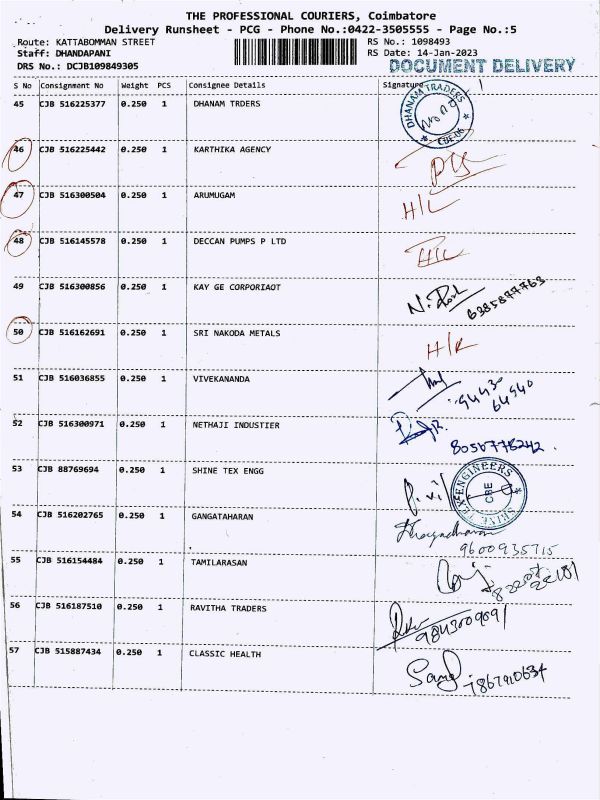 THE PROFESSIONAL COURIERS, Coimbatore
Delivery Runsheet - PCG - Phone No.:0422-3505555 - Page No.:5
Route: KATTABOMMAN STREET RS No.: 1098493
Staff: DHANDAPANI RS Date: 14-Jan-2023
DRS No.: DCJB109849305 DOCUMENT DELIVERY
S No Consignment No Weight PCS Consignee Details Signature
45 CJB 516225377 0.250 1 DHANAM TRDERS DHANAM TRADERS CBE-06
46 CJB 516225442 0.250 1 KARTHIKA AGENCY
47 CJB 516300504 0.250 1 ARUMUGAM H/L
48 CJB 516145578 0.250 1 DECCAN PUMPS P LTD H/L
49 CJB 516300856 0.250 1 KAY GE CORPORIAOT 6385877763
50 CJB 516162691 0.250 1 SRI NAKODA METALS H/R
51 CJB 516036855 0.250 1 VIVEKANANDA 94430 64940
52 CJB 516300971 0.250 1 NETHAJI INDUSTIER 8056778242
53 CJB 88769694 0.250 1 SHINE TEX ENGG SHINE TEX ENGINEERS CBE
54 CJB 516202765 0.250 1 GANGATAHARAN 9600935715
55 CJB 516154484 0.250 1 TAMILARASAN
56 CJB 516187510 0.250 1 RAVITHA TRADERS 9843009091
57 CJB 515887434 0.250 1 CLASSIC HEALTH 7867910634